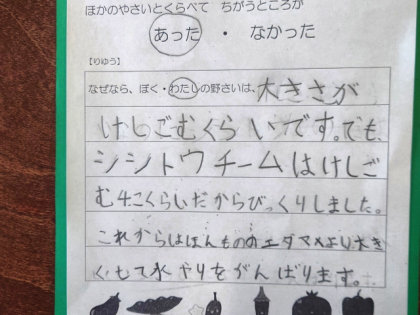 ほかのやさいとくらべて ちがうところが
あった ・ なかった
【りゆう】
なぜなら、ぼく・わたしの野さいは、大きさが
けしごむくらいです。でも、
シシトウチームはけしご
む4こくらいだからびっくりしました。
これからはほんもののエダマメより大き
くして水やりをがんばります。